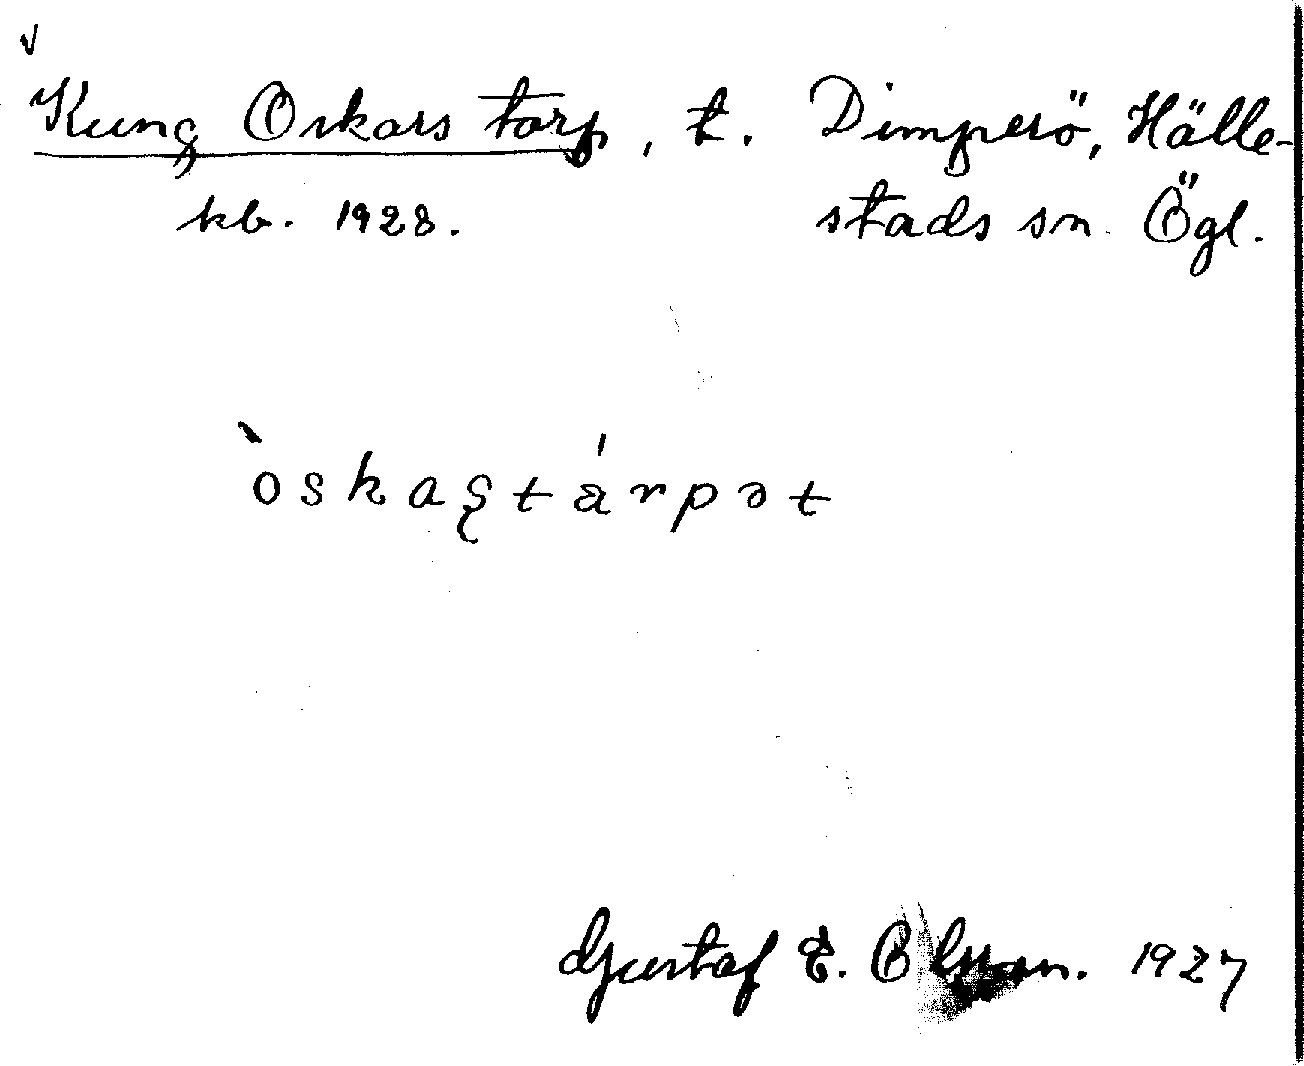 √
Kung Oskars torp, t. Dimperö, Hälle-
kb. 1928. stads sn. Ögl.
òskaʂtárpət
Gustaf E. Olsson. 1927